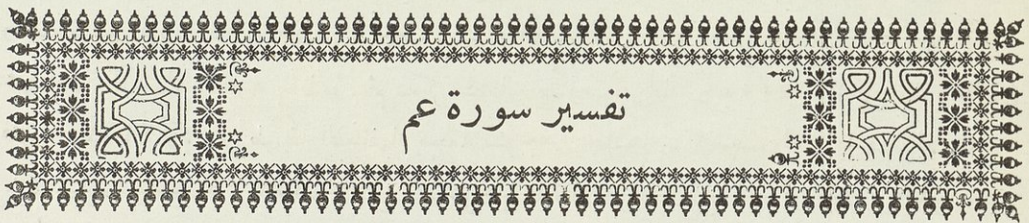 تفسير سورة عم